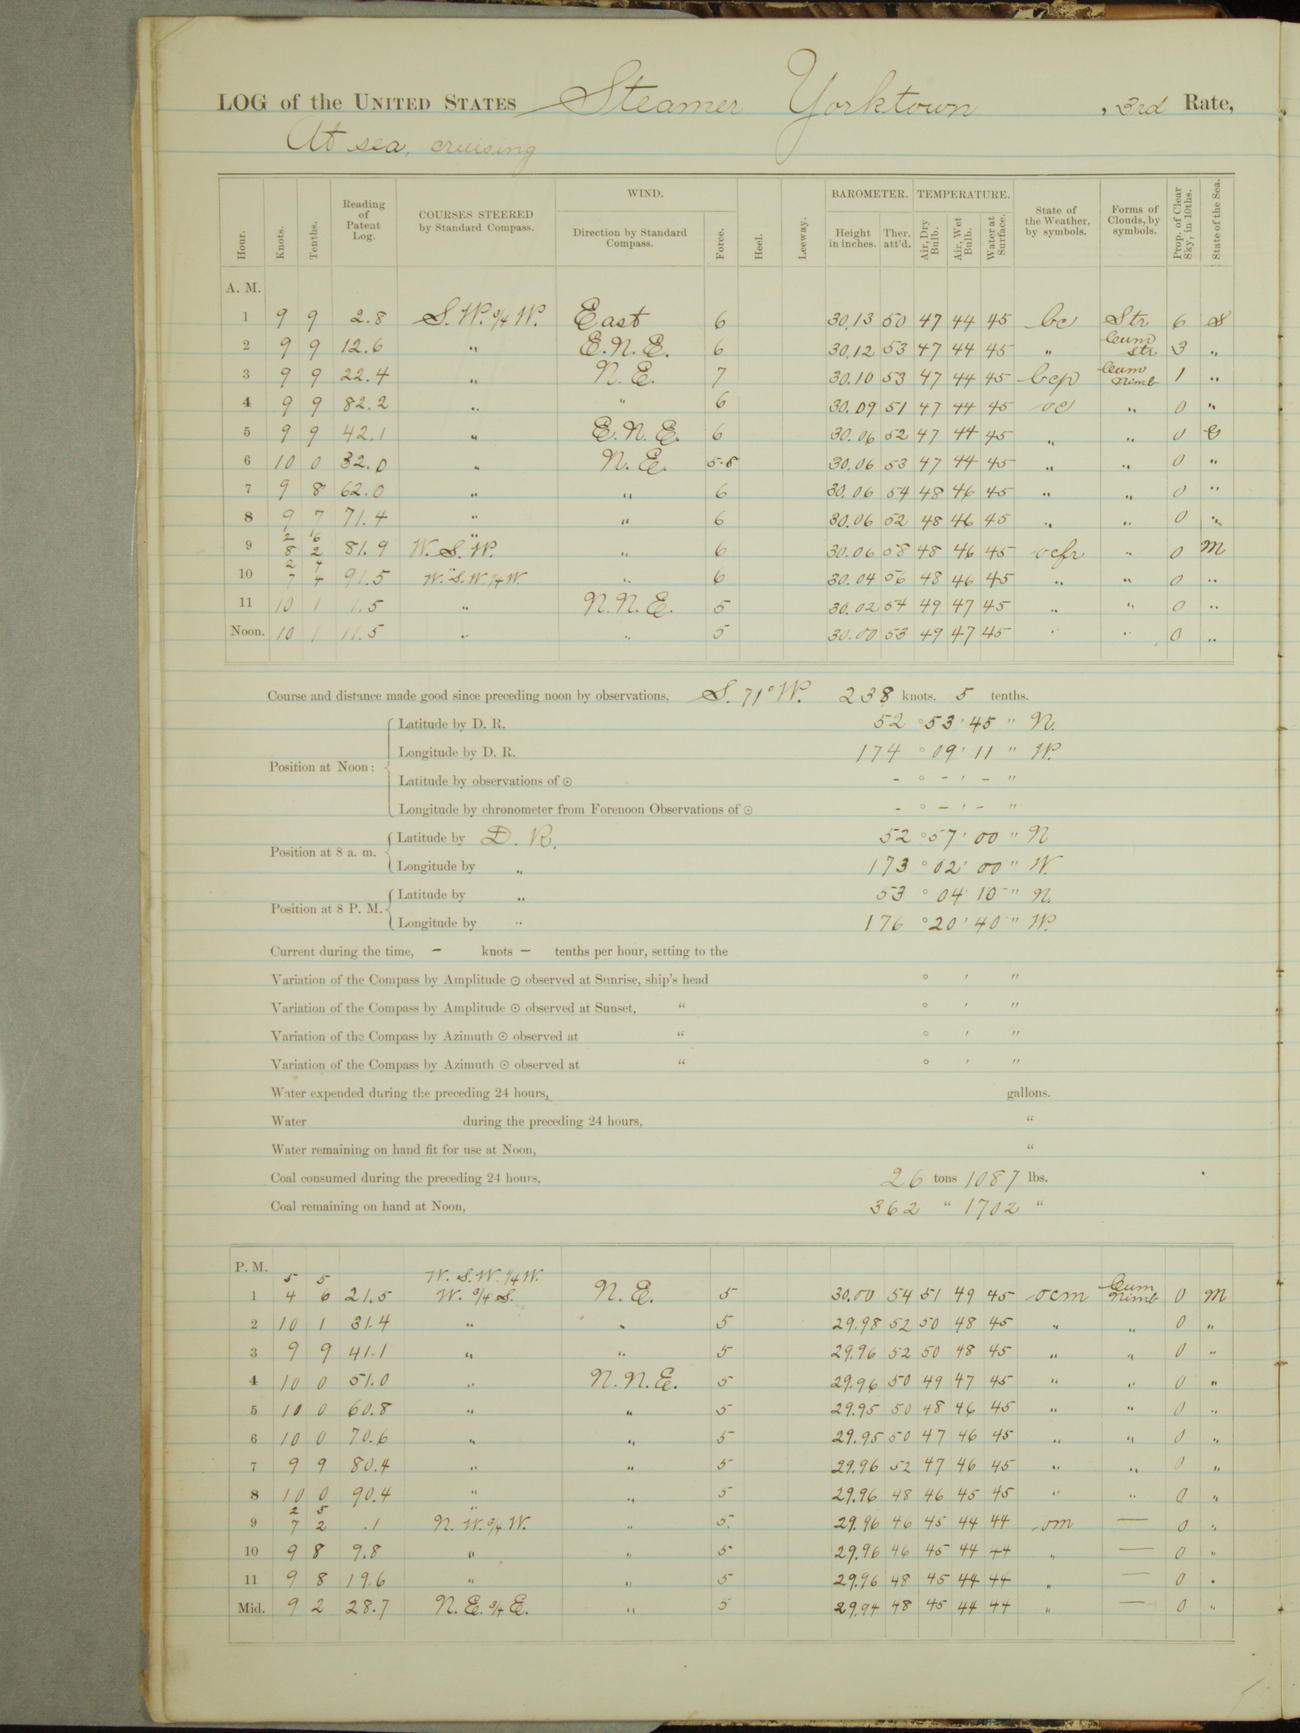 LOG of the UNITED STATES Steamer Yorktown, 3rd Rate,
At sea, cruising
Hour. Knots. Tenths. Reading of Patent Log. COURSES STEERED by Standard Compass. WIND. Direction by Standard Compass. Force. Heel. Leeway. BAROMETER. Height in inches. Ther. att'd. TEMPERATURE. Air, Dry Bulb. Air, Wet Bulb. Water at Surface. State of the Weather, by symbols. Forms of Clouds, by symbols. Prop. of Clear Sky, in 10ths. State of the Sea.
A. M.
1 9 9 2.8 S.W. 3/4 W. East 6 30.13 50 47 44 45 bc Str 6 S
2 9 9 12.6 " E.N.E. 6 30.12 53 47 44 45 " Cum Str. 3 "
3 9 9 22.4 " N.E. 7 30.10 53 47 44 45 bcp Cum Nimb 1 "
4 9 9 82.2 " " 6 30.09 51 47 44 45 oc " 0 "
5 9 9 42.1 " E.N.E. 6 30.06 52 47 44 45 " " 0
6 10 0 32.0 " N.E. 5-8 30.06 53 47 44 45 " " 0 "
7 9 8 62.0 " " 6 30.06 54 48 46 45 " " 0 "
8 9 7 71.4 " " 6 30.06 52 48 46 45 " " 0 "
2 6 "
9 8 2 81.9 W.S.W. " 6 30.06 58 48 46 45 " 0 M
2 7 "
10 7 4 91.5 W.S.W.1/4W. " 6 30.04 56 48 46 45 " " 0 "
11 10 1 1.5 " N.N.E. 5 30.02 54 49 47 45 " " 0 "
Noon. 10 1 11.5 " " 5 30.00 53 49 47 45 " " 0 "
Course and distance made good since preceding noon by observations, S. 71° W. 238 knots. 5 tenths.
Position at Noon: Latitude by D. R. 52 ° 53 ' 45 " N.
Longitude by D. R. 174 ° 09 ' 11 " W.
Latitude by observations of ☉ - ° - ' - "
Longitude by chronometer from Forenoon Observations of ☉ - ° - ' - "
Position at 8 a. m. Latitude by D. R. 52 ° 57 ' 00 " N
Longitude by " 173 ° 02 ' 00 " W.
Position at 8 P. M. Latitude by " 53 ° 04 ' 10 " N.
Longitude by " 176 ° 20 ' 40 " W.
Current during the time, – knots – tenths per hour, setting to the
Variation of the Compass by Amplitude ☉ observed at Sunrise, ship's head ° ' "
Variation of the Compass by Amplitude ☉ observed at Sunset, " ° ' "
Variation of the Compass by Azimuth ☉ observed at " ° ' "
Variation of the Compass by Azimuth ☉ observed at " ° ' "
Water expended during the preceding 24 hours, gallons.
Water during the preceding 24 hours, "
Water remaining on hand fit for use at Noon, "
Coal consumed during the preceding 24 hours, 26 tons 1087 lbs.
Coal remaining on hand at Noon, 362 " 1702 "
P. M.
5 5 W.S.W.1/4W.
1 4 6 21.5 W. 3/4 S. N.E. 5 30.00 54 51 49 45 ocm Cum Nimb 0 M
2 10 1 31.4 " " 5 29.98 52 50 48 45 " " 0 "
3 9 9 41.1 " " 5 29.96 52 50 48 45 " " 0 "
4 10 0 51.0 " N.N.E. 5 29.96 50 49 47 45 " " 0 "
5 10 0 60.8 " " 5 29.95 50 48 46 45 " " 0 "
6 10 0 70.6 " " 5 29.95 50 47 46 45 " " 0 "
7 9 9 80.4 " " 5 29.96 52 47 46 45 " " 0 "
8 10 0 90.4 " " 5 29.96 48 46 45 45 " " 0 "
2 5 "
9 7 2 .1 N.W.3/4W. " 5 29.96 46 45 44 44 om — 0 "
10 9 8 9.8 " " 5 29.96 46 45 44 44 " — 0 "
11 9 8 19.6 " " 5 29.96 48 45 44 44 " — 0 "
Mid. 9 2 28.7 N.E.3/4E. " 5 29.94 48 45 44 44 " — 0 "